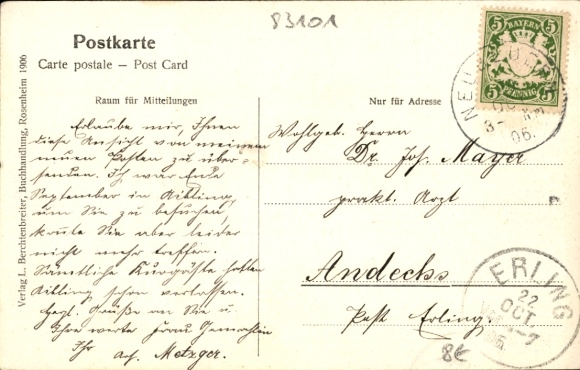 83101
Postkarte
Carte postale – Post Card
Raum für Mitteilungen
Nur für Adresse
Verlag L. Berchtenbreiter, Buchhandlung, Rosenheim 1906
Erlaube mir, Ihnen
diese Ansicht von meinem
neuen Posten zu über-
senden. Ich war Ende
September in Aibling,
um Sie zu besuchen,
konnte Sie aber leider
nicht mehr treffen.
Sämtliche Kurgäste hatten
Aibling schon verlassen.
Grüße an Sie u
Ihre werte Frau Gemahlin
Ihr Metzger.
Wohlgeb. Herrn
Dr. Jos. Mayer
prakt. Arzt
Andechs
Post Erling.
8€
5 BAYERN 5
5 PFENNIG 5
06.
ERLING
22
OCT